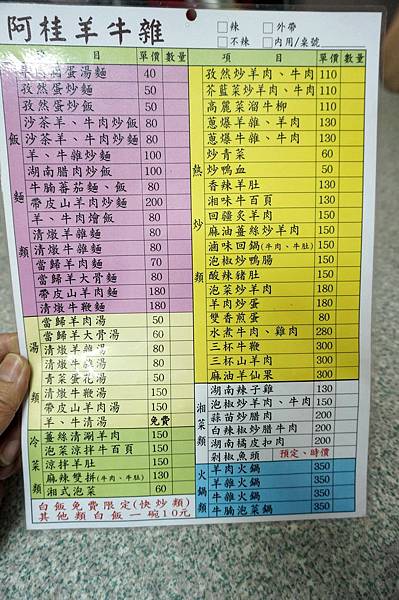 阿桂羊牛雜
□辣 □外帶
□不辣 □內用/桌號
項 目 單價 數量
飯麵類
蛋湯麵 40
孜然蛋炒麵 50
孜然蛋炒飯 50
沙茶羊、牛肉炒飯 80
沙茶羊、牛肉炒麵 80
羊、牛雜炒麵 100
湖南腊肉炒飯 100
牛腩蕃茄麵、飯 80
帶皮山羊肉炒麵 200
羊、牛肉燴飯 80
清燉羊雜麵 80
清燉牛雜麵 80
當歸羊肉麵 80
當歸羊大骨麵 80
帶皮山羊肉麵 180
清燉牛鞭麵 180
湯類
當歸羊肉湯 50
當歸羊大骨湯 60
清燉羊雜湯 80
清燉牛雜湯 80
青菜蛋花湯 50
清燉牛鞭湯 150
帶皮山羊肉湯 150
羊、牛清湯 免費
冷菜類
薑絲清涮羊肉 150
泡菜涼拌牛百頁 150
涼拌羊肚 150
麻辣雙拼(牛肉、牛肚) 130
湘式泡菜 60
白飯免費限定(快炒類)
其他類白飯一碗10元
項 目 單價 數量
熱炒類
孜然炒羊肉、牛肉 110
芥藍菜炒羊肉、牛肉 110
高麗菜溜牛柳 110
蔥爆羊雜、羊肉 130
蔥爆牛雜、牛肉 130
炒青菜 60
炒鴨血 50
香辣羊肚 150
湘味牛百頁 150
回疆炙羊肉 150
麻油薑絲炒羊肉 150
滷味回鍋(牛肉、牛肚) 150
泡椒炒鴨腸 150
酸辣豬肚 150
泡菜炒羊肉 150
羊肉炒蛋 150
雙香煎蛋 80
水煮牛肉、雞肉 280
三杯牛鞭 300
三杯山羊肉 300
麻油羊仙果 300
湘菜類
湖南辣子雞 130
泡椒炒羊肉、牛肉 150
蒜苗炒腊肉 200
白辣椒炒腊牛肉 200
湖南橘皮扣肉 200
剁椒魚頭 預定、時價
火鍋類
羊肉火鍋 350
羊雜火鍋 350
牛雜火鍋 350
牛腩泡菜鍋 350